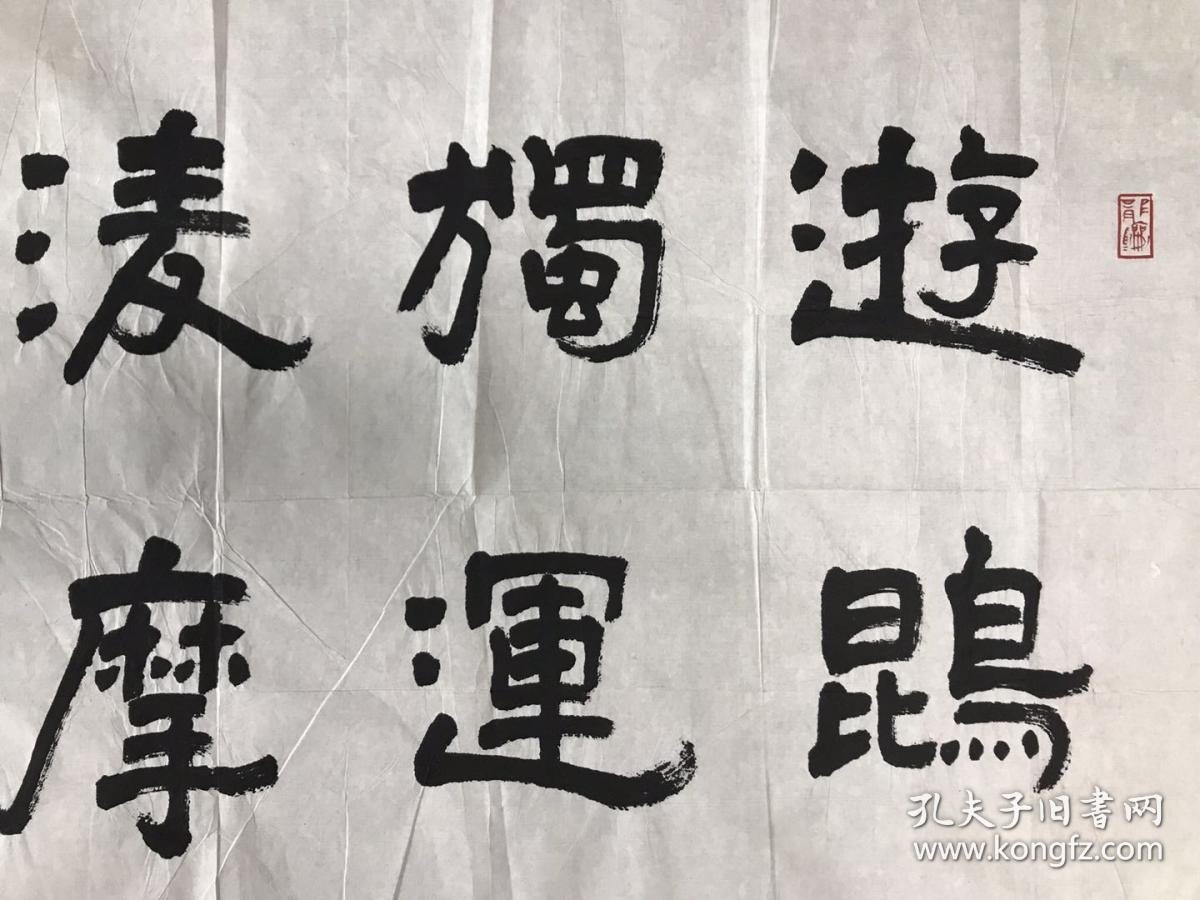 遊鵾
獨運
淩摩
孔夫子旧书网
www.kongfz.com